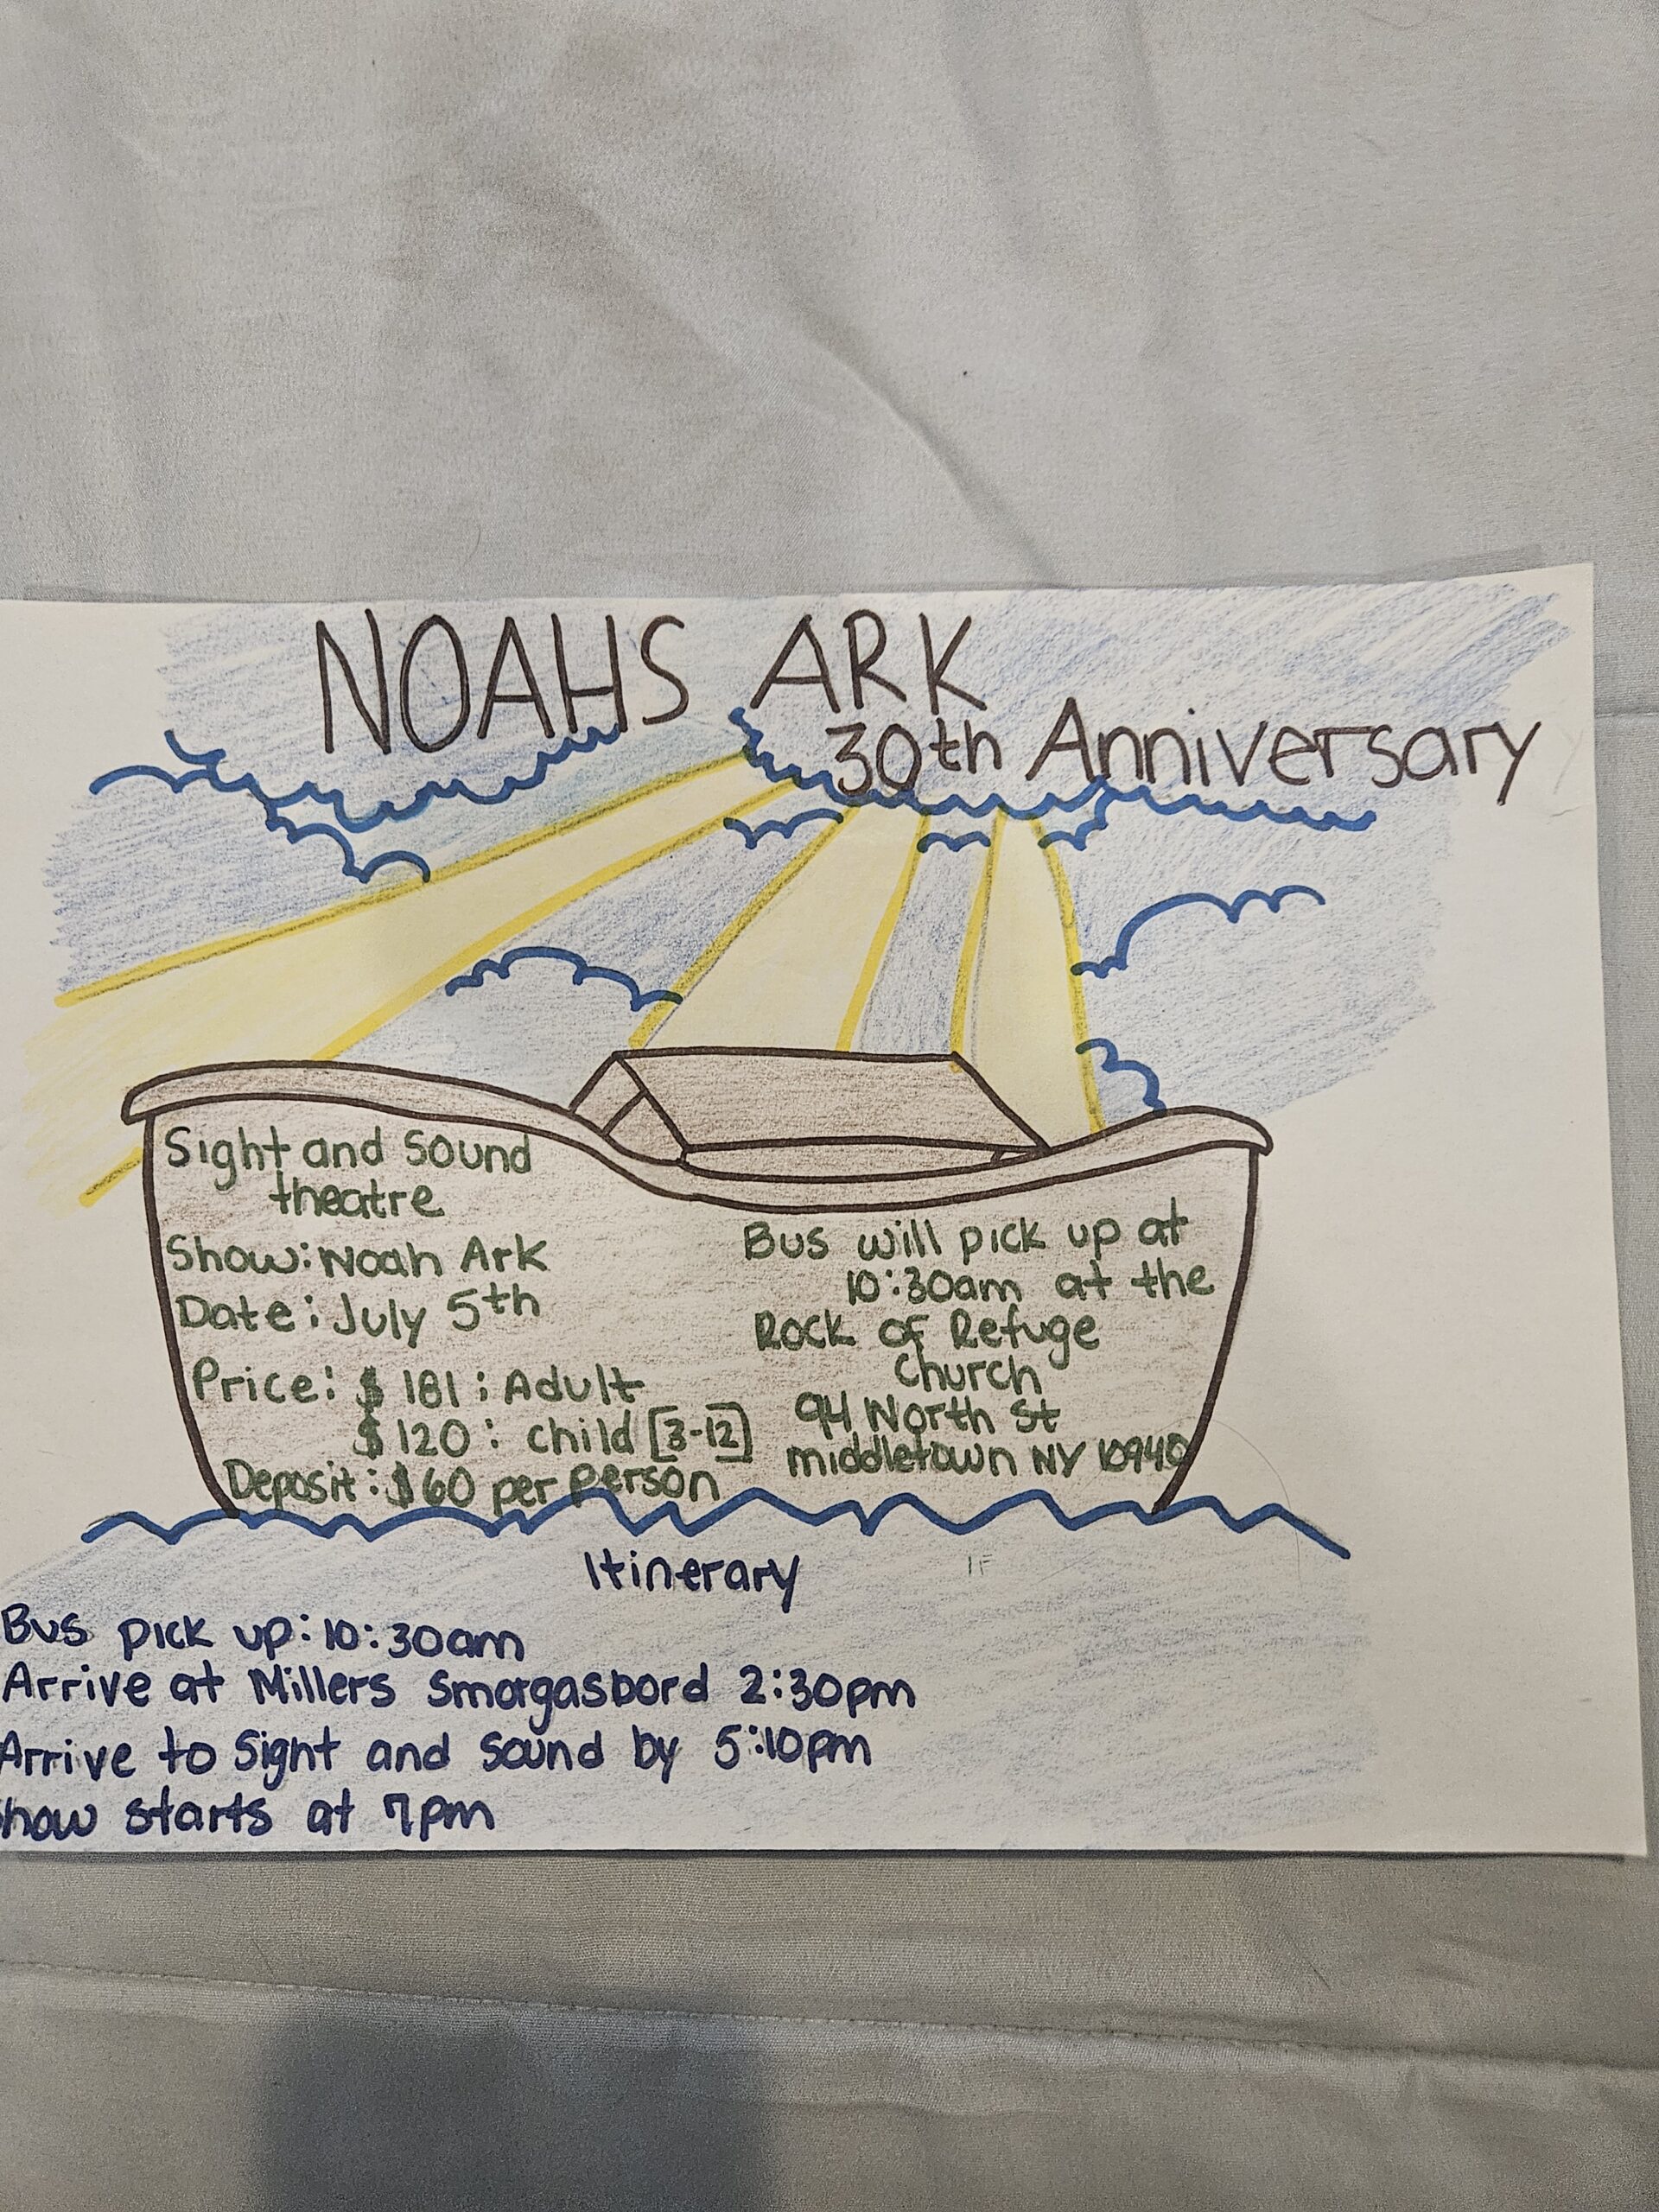 NOAHS ARK
30th Anniversary
Sight and Sound
theatre
Show: Noah Ark
Date: July 5th
Price: $ 181 : Adult
$ 120 : child [3-12]
Deposit: $60 per person
Bus will pick up at
10:30am at the
Rock of Refuge
Church
94 North St
middletown NY 10940
Itinerary
IF
Bus pick up: 10:30am
Arrive at Millers Smorgasbord 2:30pm
Arrive to Sight and Sound by 5:10pm
how starts at 7pm